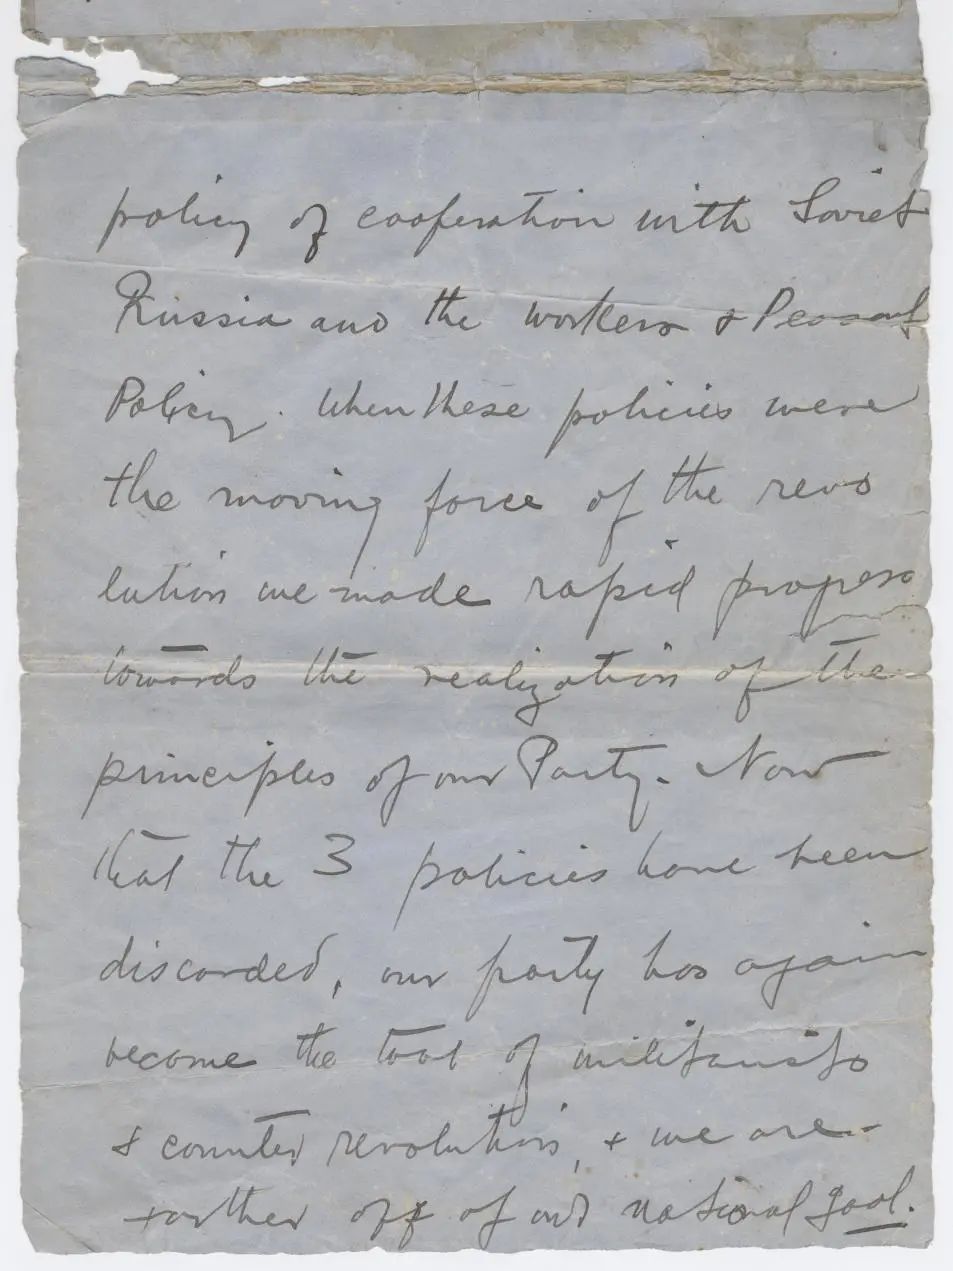 policy of cooperation with Soviet
Russia and the workers & Peasant
Policy. When these policies were
the moving force of the revo
lution we made rapid progress
towards the realization of the
principles of our Party. Now
that the 3 policies have been
discarded, our party has again
become the tool of militarists
& counter revolution, & we are
farther off of our national goal.